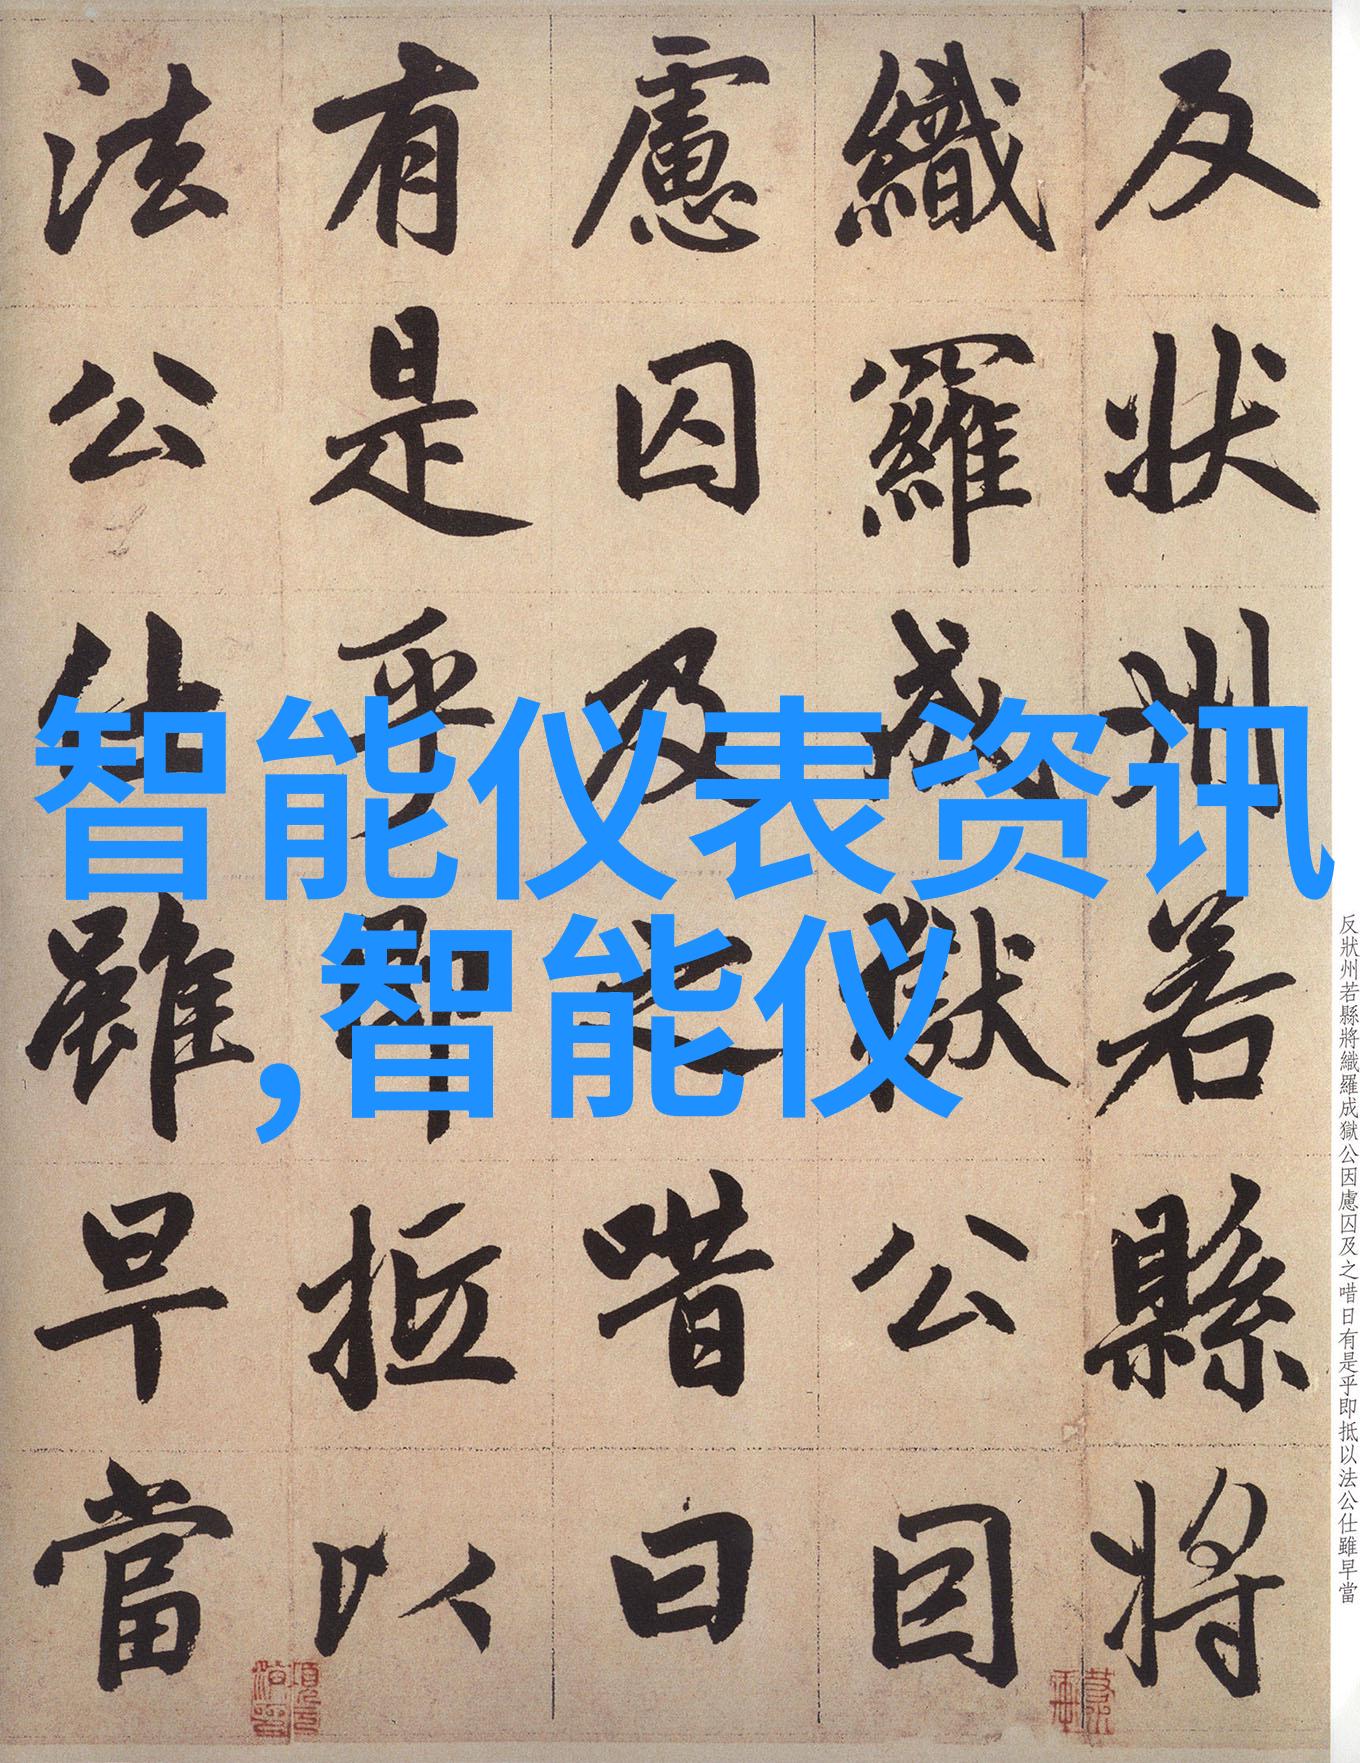 反状州若縣將
織羅成獄公因
慮囚及之唶曰
有是乎即抵以
法公仕雖早當
智能仪表资讯
,智能仪
反狀州若縣將織羅成獄公因慮囚及之唶日有是乎即抵以法公仕雖早當